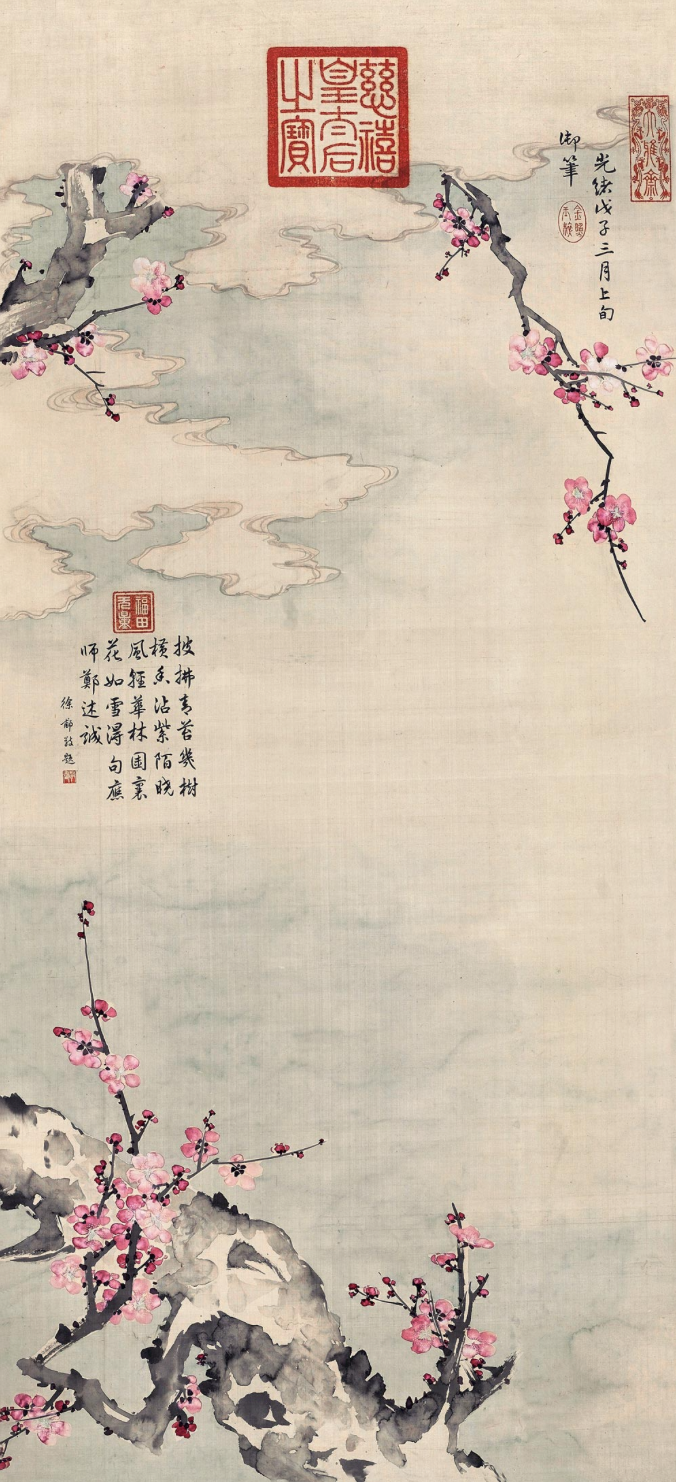 慈禧
皇太后
之寶
大雅齋
光緒戊子三月上旬
御筆
福田
无量
披拂青苔幾樹
橫香沾紫陌晓
風輕華林園裏
花如雪得句應
师鄭述誠
徐郙敬題